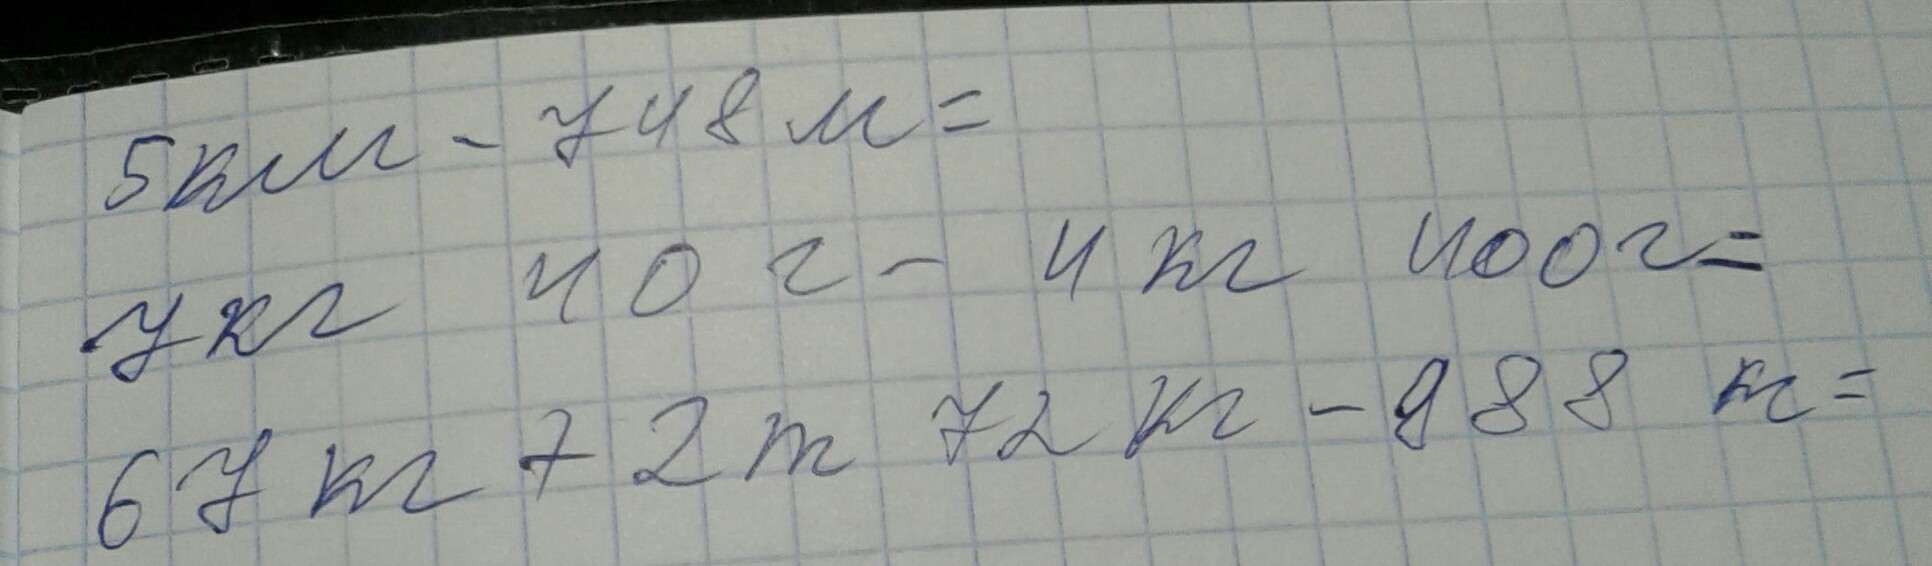 5км - 748 м =
7кг 40 г - 4 кг 400г =
67 кг + 2 т 72 кг - 988 кг =